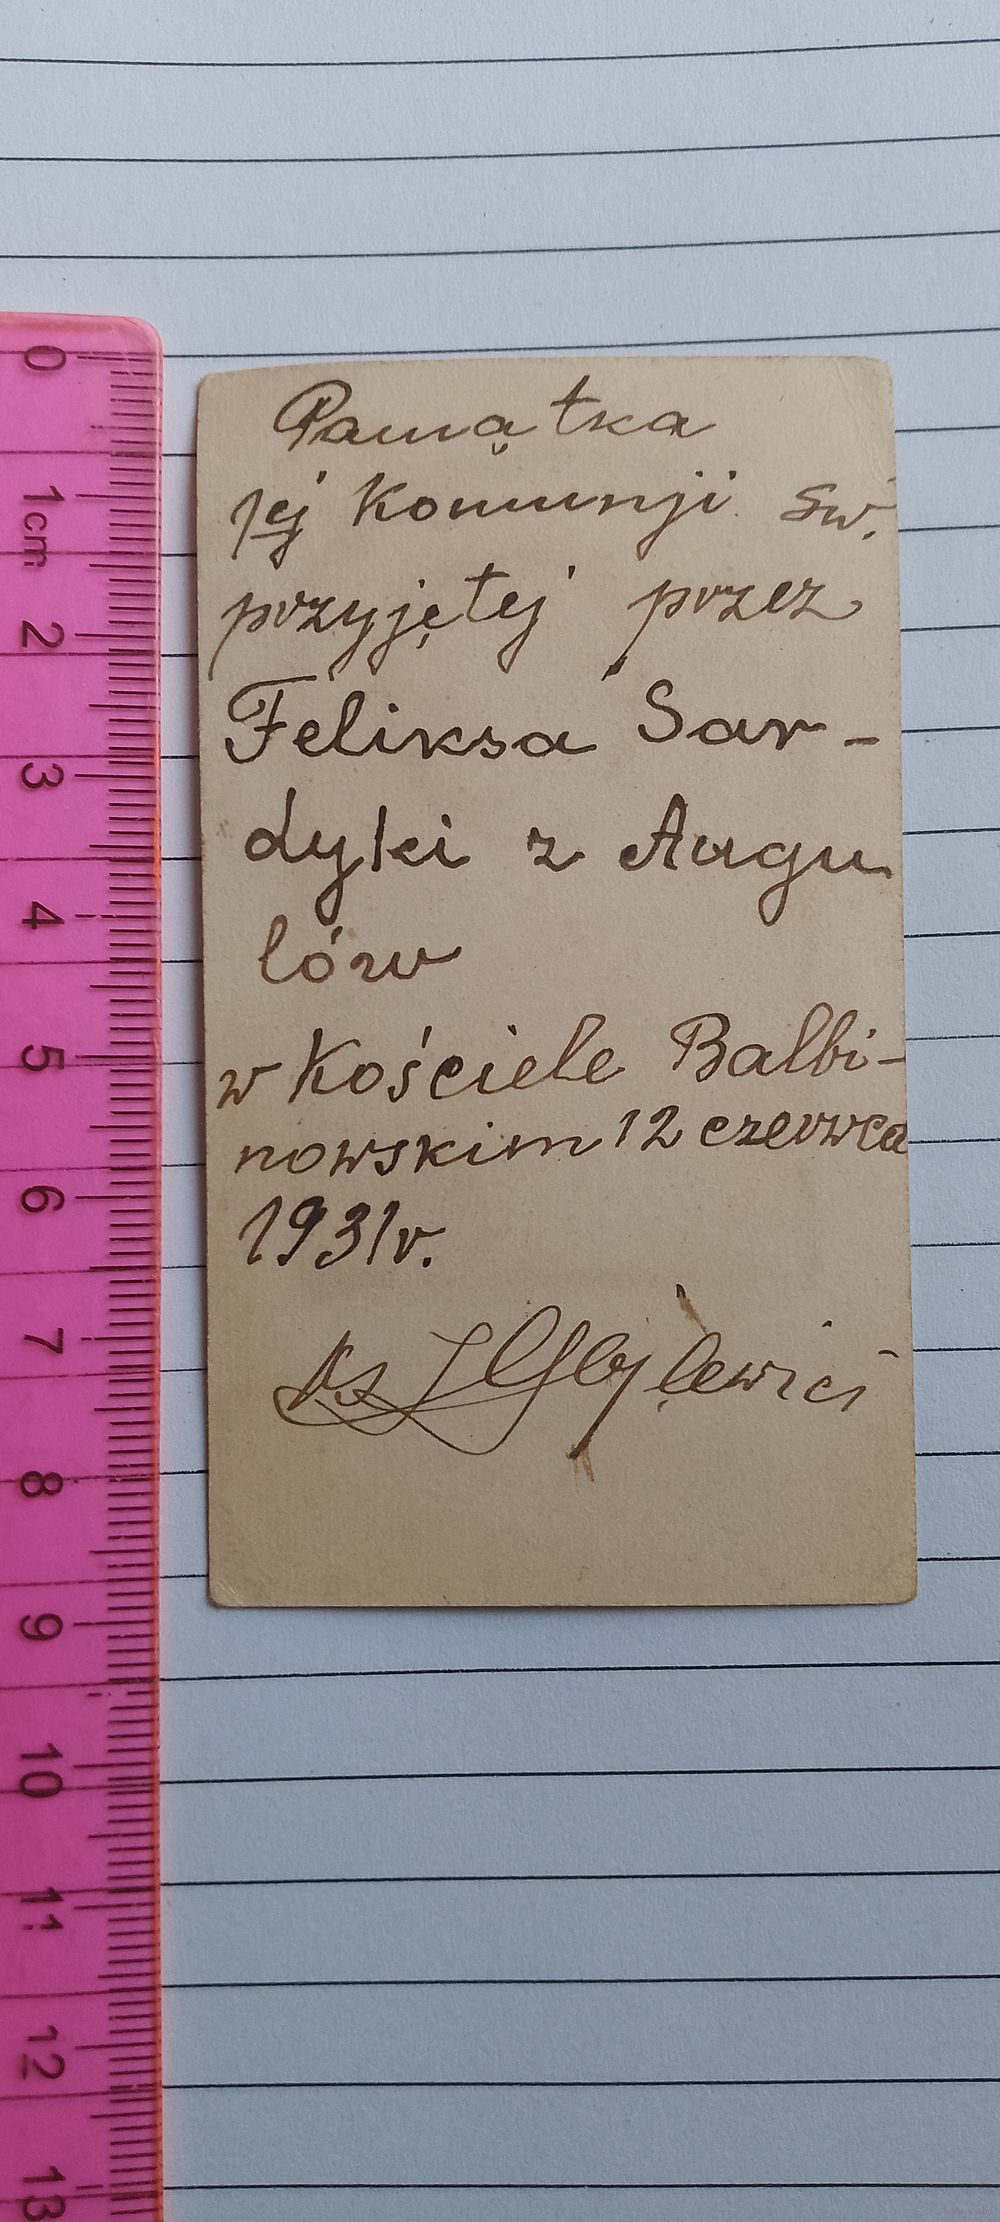 Pamątka
1ej Komunji św.
przyjętej przez
Feliksa Sar-
dyki z Augu
lów
w Kościele Balbi-
nowskim 12 czerwca
1931r.
Ks
0
1cm
2
3
4
5
6
7
8
9
10
11
12
13